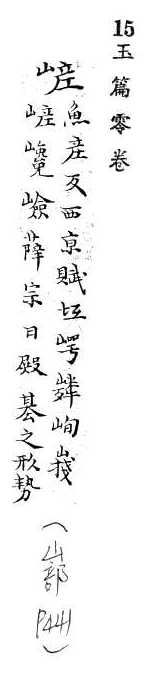 15玉篇零卷
嵼魚產反西京賦坻崿鱗峋嵼
嵼嶘嶮薛宗曰殿基之形勢
(山部 P441)